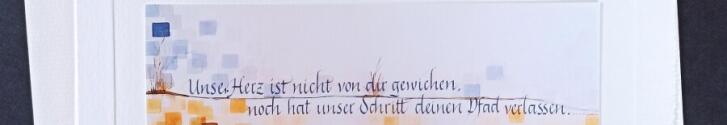 Unser Herz ist nicht von dir gewichen,
noch hat unser Schritt deinen Pfad verlassen.